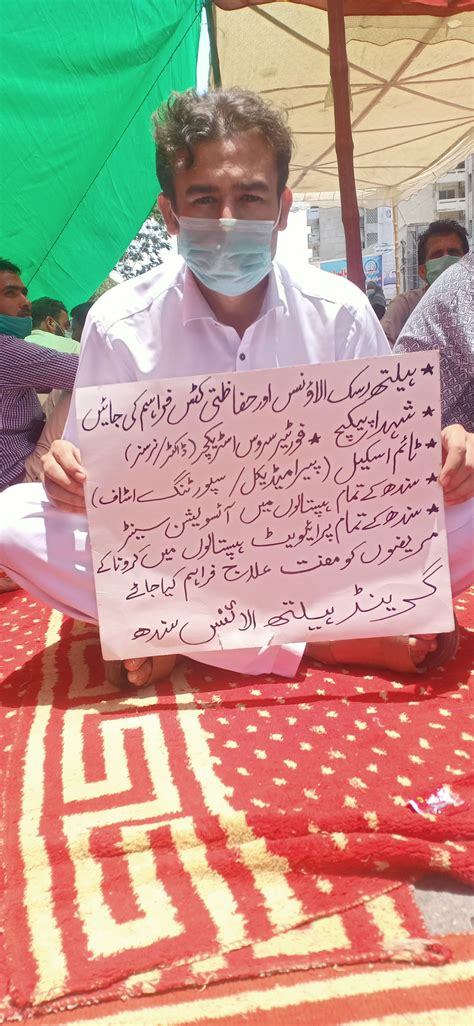 * ہیلتھ رسک الاؤنس اور حفاظتی کٹس فراہم کی جائیں
* شہداء پیکیج * فورٹیر سروس اسٹریکچر (ڈاکٹر/نرسز)
* ٹائم اسکیل (پیرامیڈیکل/سپورٹنگ اسٹاف)
* سندھ کے تمام ہسپتالوں میں آئسولیشن سینٹر
* سندھ کے تمام پرائیویٹ ہسپتالوں میں کرونا کے
مریضوں کو مفت علاج فراہم کیا جائے
گرینڈ ہیلتھ الائنس سندھ